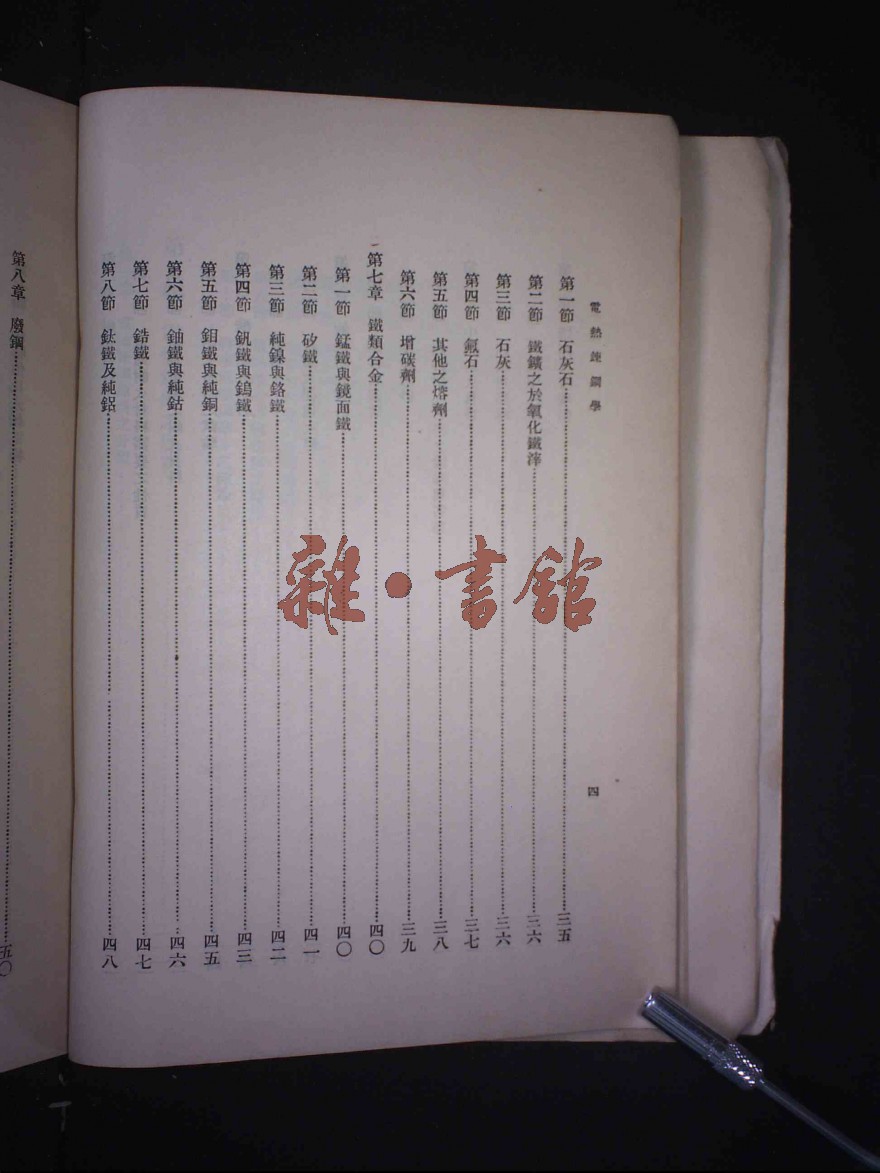 電熱鍊鋼學
四
第一節 石灰石……三五
第二節 鐵鑛之於氧化鐵滓……三六
第三節 石灰……三六
第四節 氟石……三七
第五節 其他之熔劑……三八
第六節 增碳劑……三九
第七章 鐵類合金……四〇
第一節 錳鐵與鏡面鐵……四〇
第二節 矽鐵……四一
第三節 純鎳與鉻鐵……四二
第四節 釩鐵與鎢鐵……四三
第五節 鉬鐵與純銅……四五
第六節 鈾鐵與純鈷……四六
第七節 鋯鐵……四七
第八節 鈦鐵及純鋁……四八
第八章 廢鋼……五〇
雜·書館